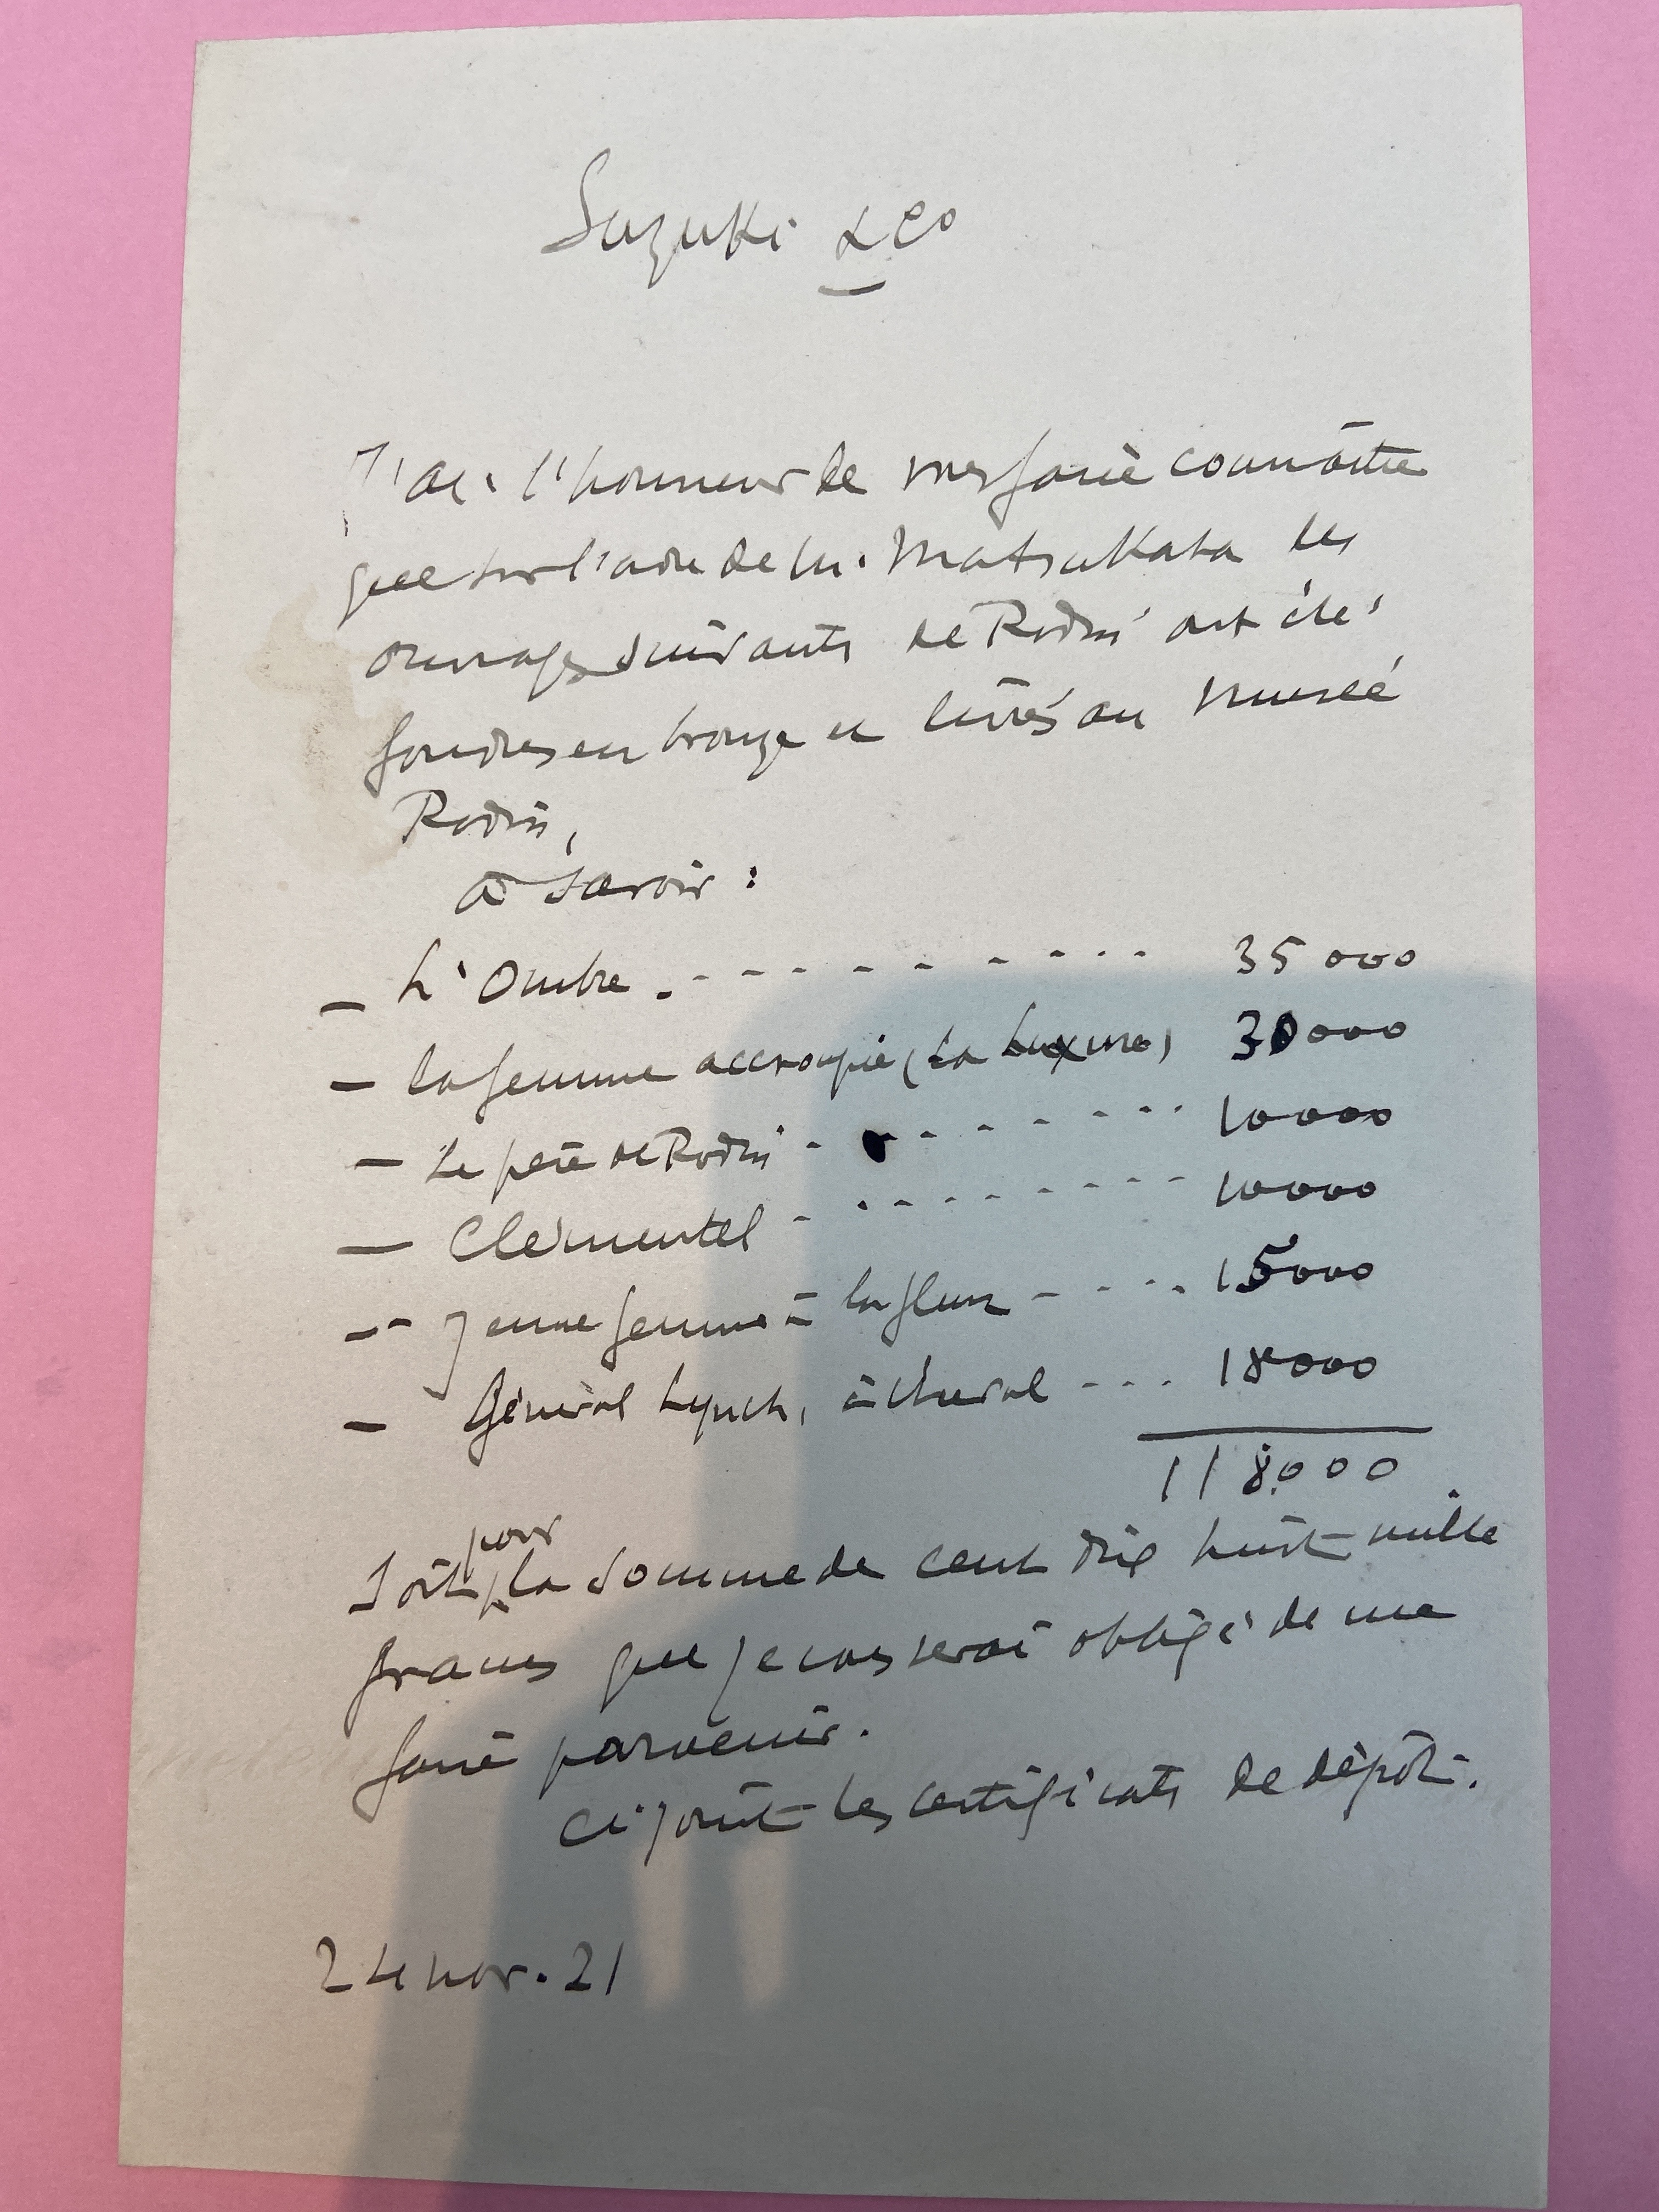 Suzuki & Co
J'ai l'honneur de vous faire connaître
que sur l'ordre de M. Matsukata les
ouvrages suivants de Rodin ont été
fondus en bronze et livrés au Musée
Rodin,
à savoir :
- L'Ombre . - - - - - - - - - - 35 000
- la femme accroupie (La Luxure) 30000
- Le père de Rodin - - - - - - - 10000
- Clémentel - - - - - - - - - 10000
- Jeune femme à la fleur - - - - 15000
- Général Lynch, à cheval - - - 18000
118.000
Soit pour la somme de cent dix huit mille
francs que je vous serai obligé de me
faire parvenir.
Ci-joint les certificats de dépôt.
24 nov. 21